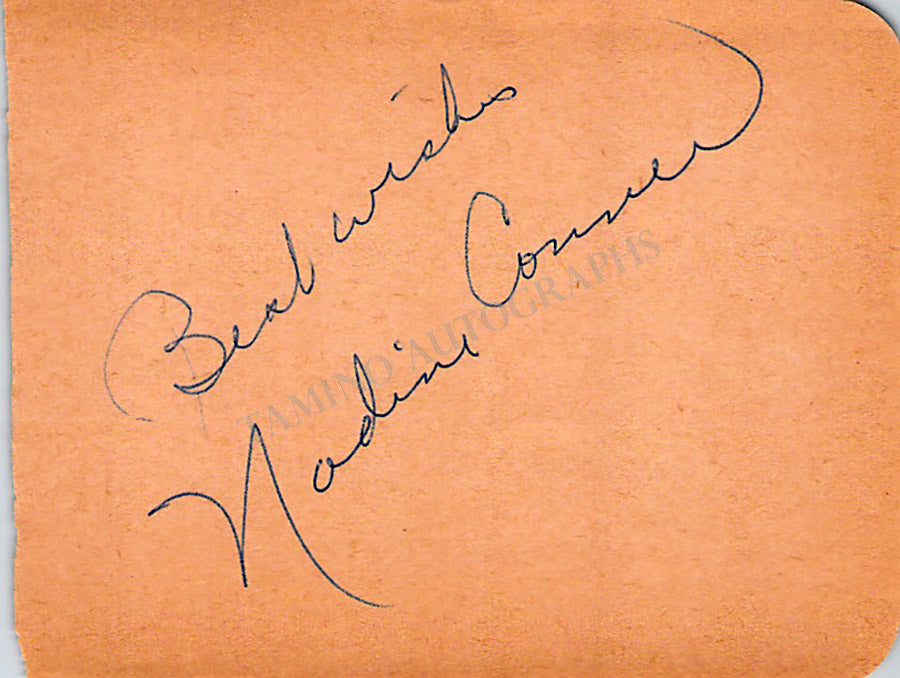 Best wishes
Nadine Conner
TAMINO AUTOGRAPHS